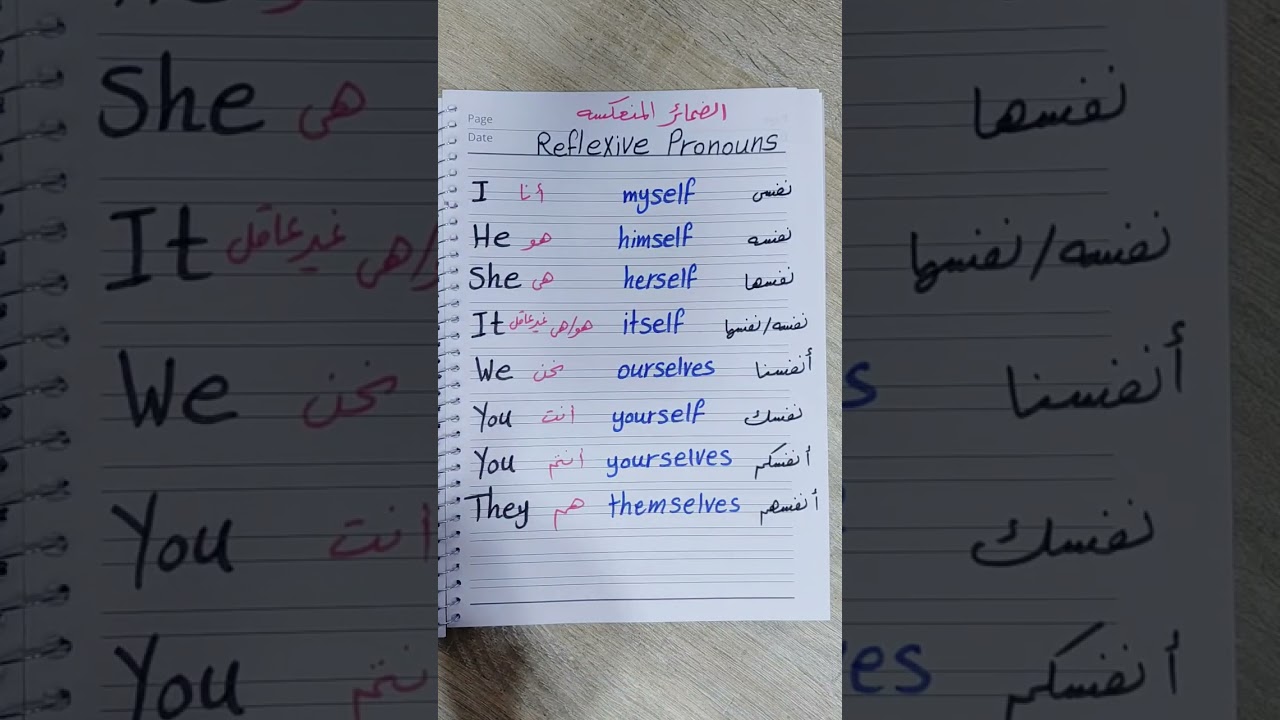 الضمائر المنعكسه
Page
Date
Reflexive Pronouns
I أنا myself نفسى
He هو himself نفسه
She هى herself نفسها
It هو/هى غير عاقل itself نفسه/نفسها
We نحن ourselves أنفسنا
You انت yourself نفسك
You انتم yourselves أنفسكم
They هم themselves أنفسهم